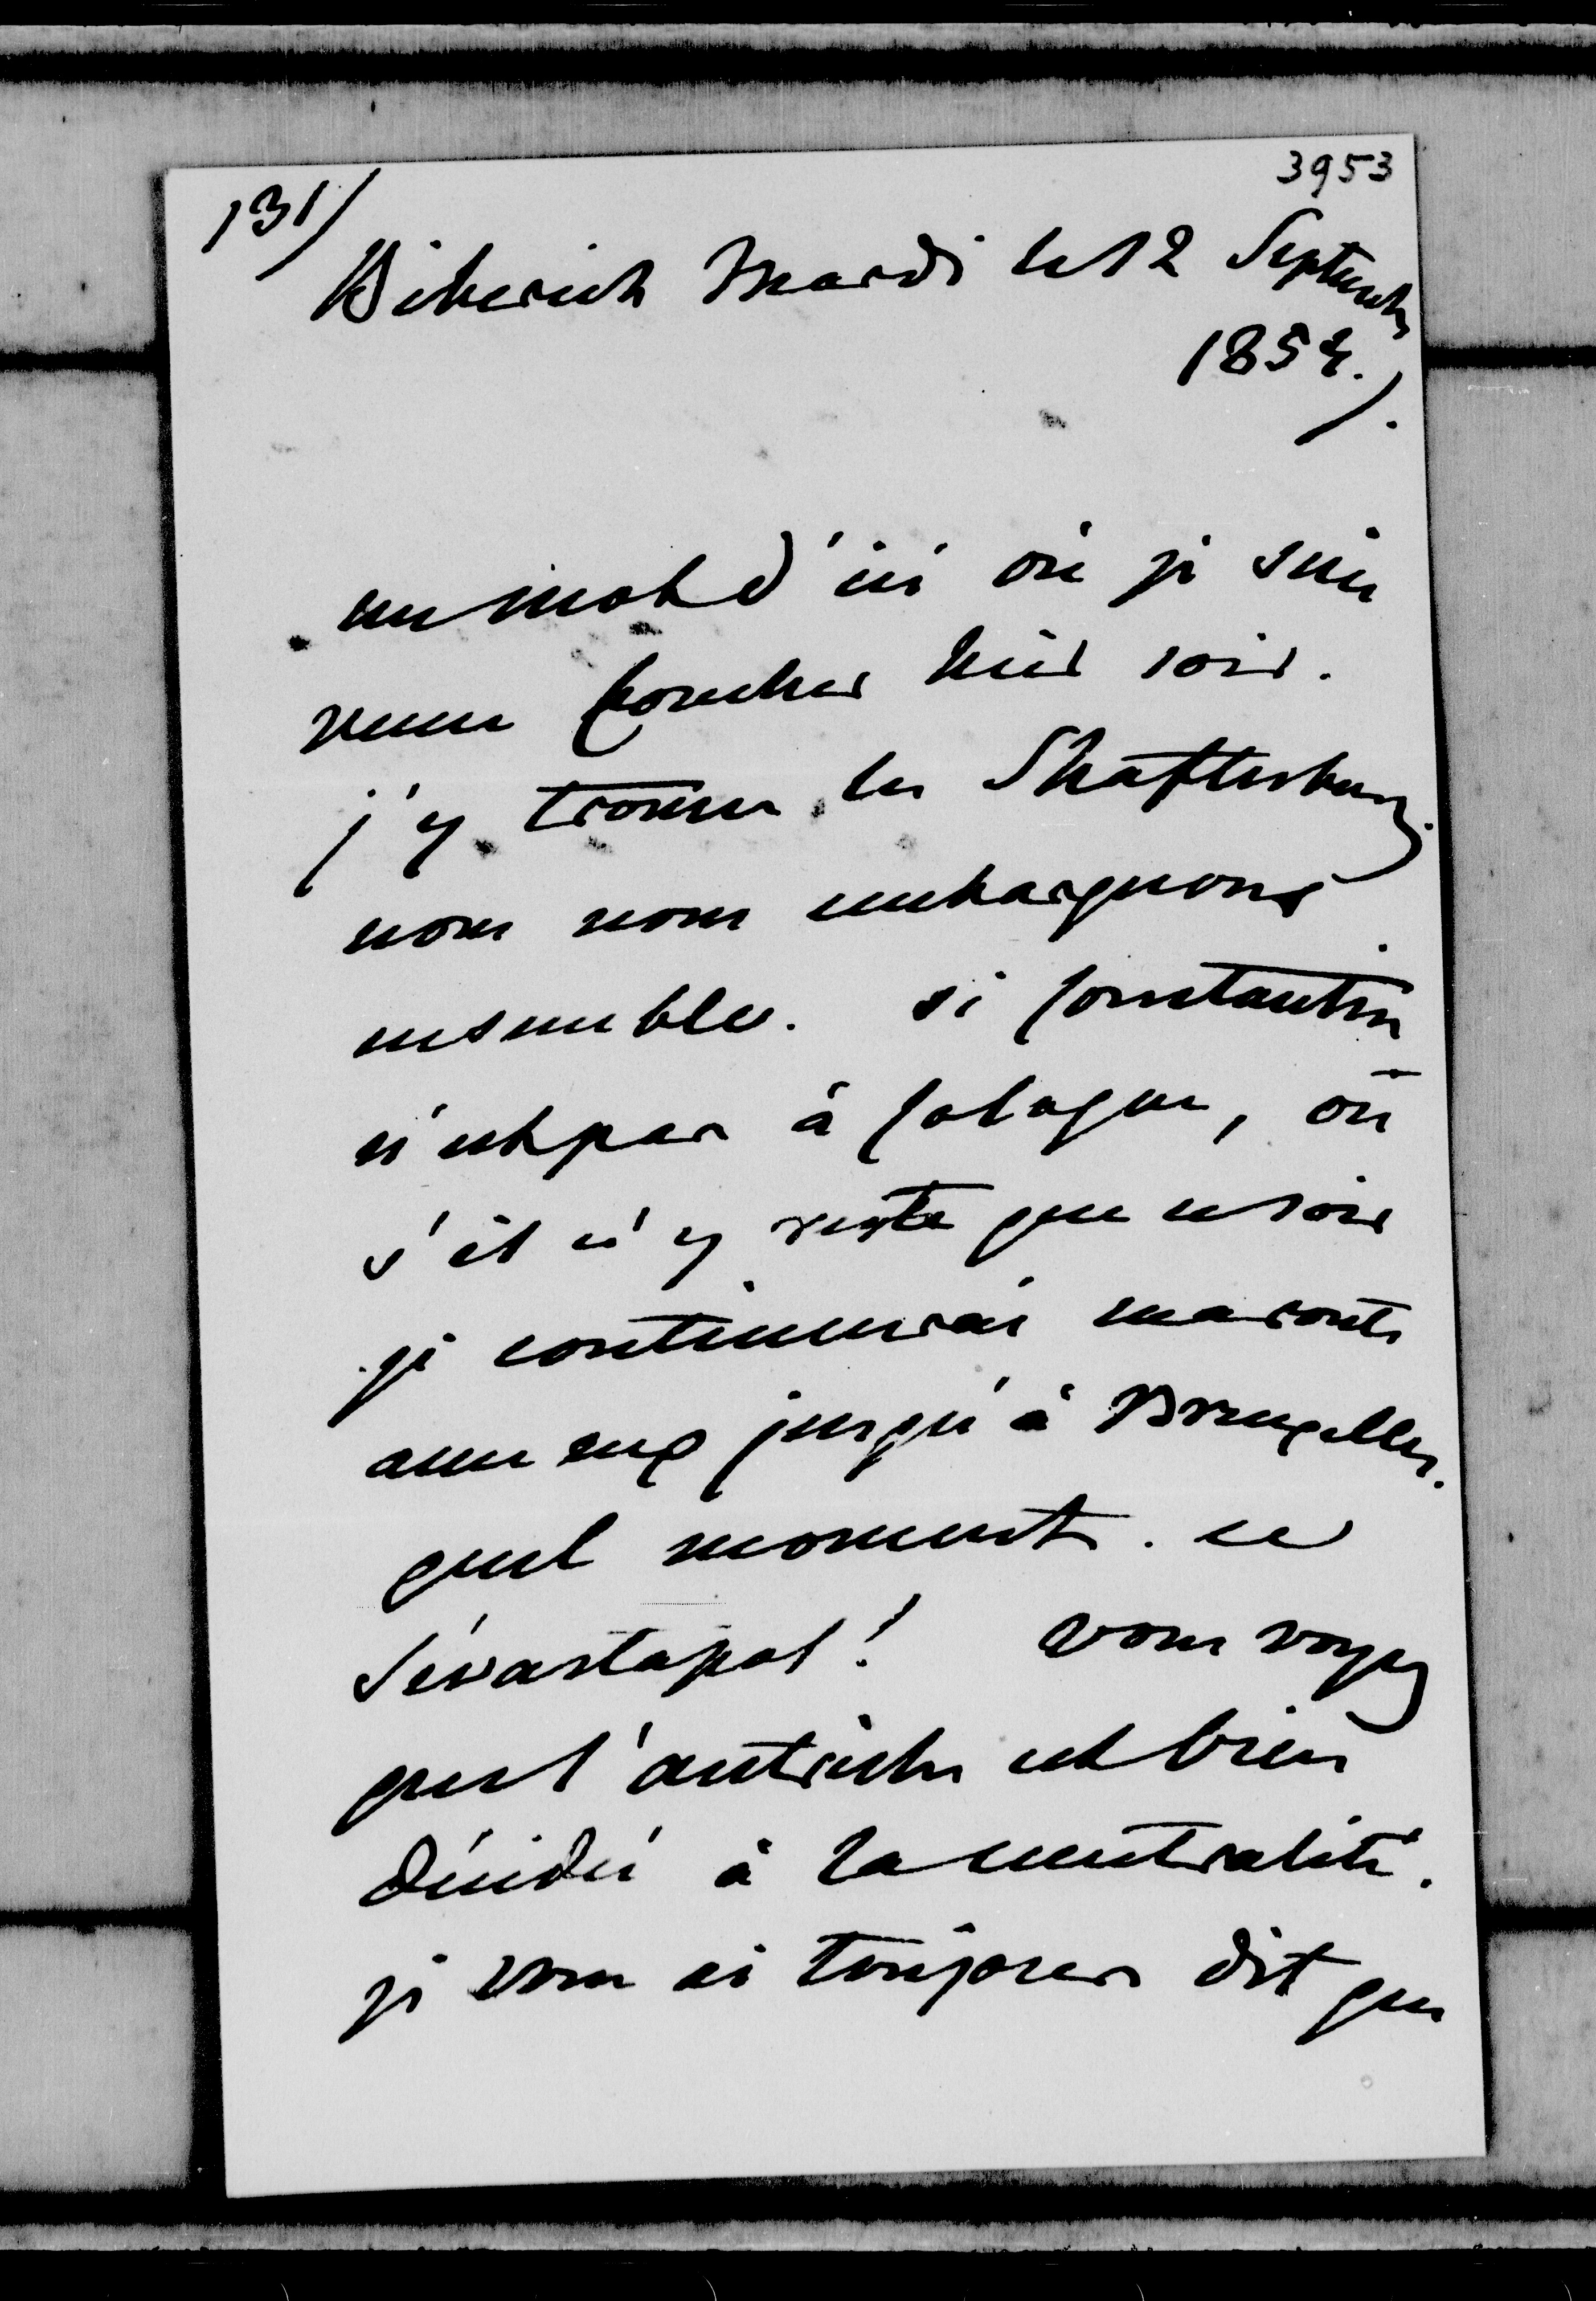 3953
131/
Biberich Mardi le 12 Septembre
1854.
un mot d'ici où je suis
venue coucher hier soir.
j'y trouve les Shaftesbury.
nous nous embarquons
ensemble. si Constantin
n'est pas à Cologne, où
s'il n'y reste que ce soir
je continuerai ma route
avec eux jusqu'à Bruxelles.
quel moment. ce
Sévastopol! vous voyez
que l'autriche est bien
décidée à la neutralité.
je vous ai toujours dit que